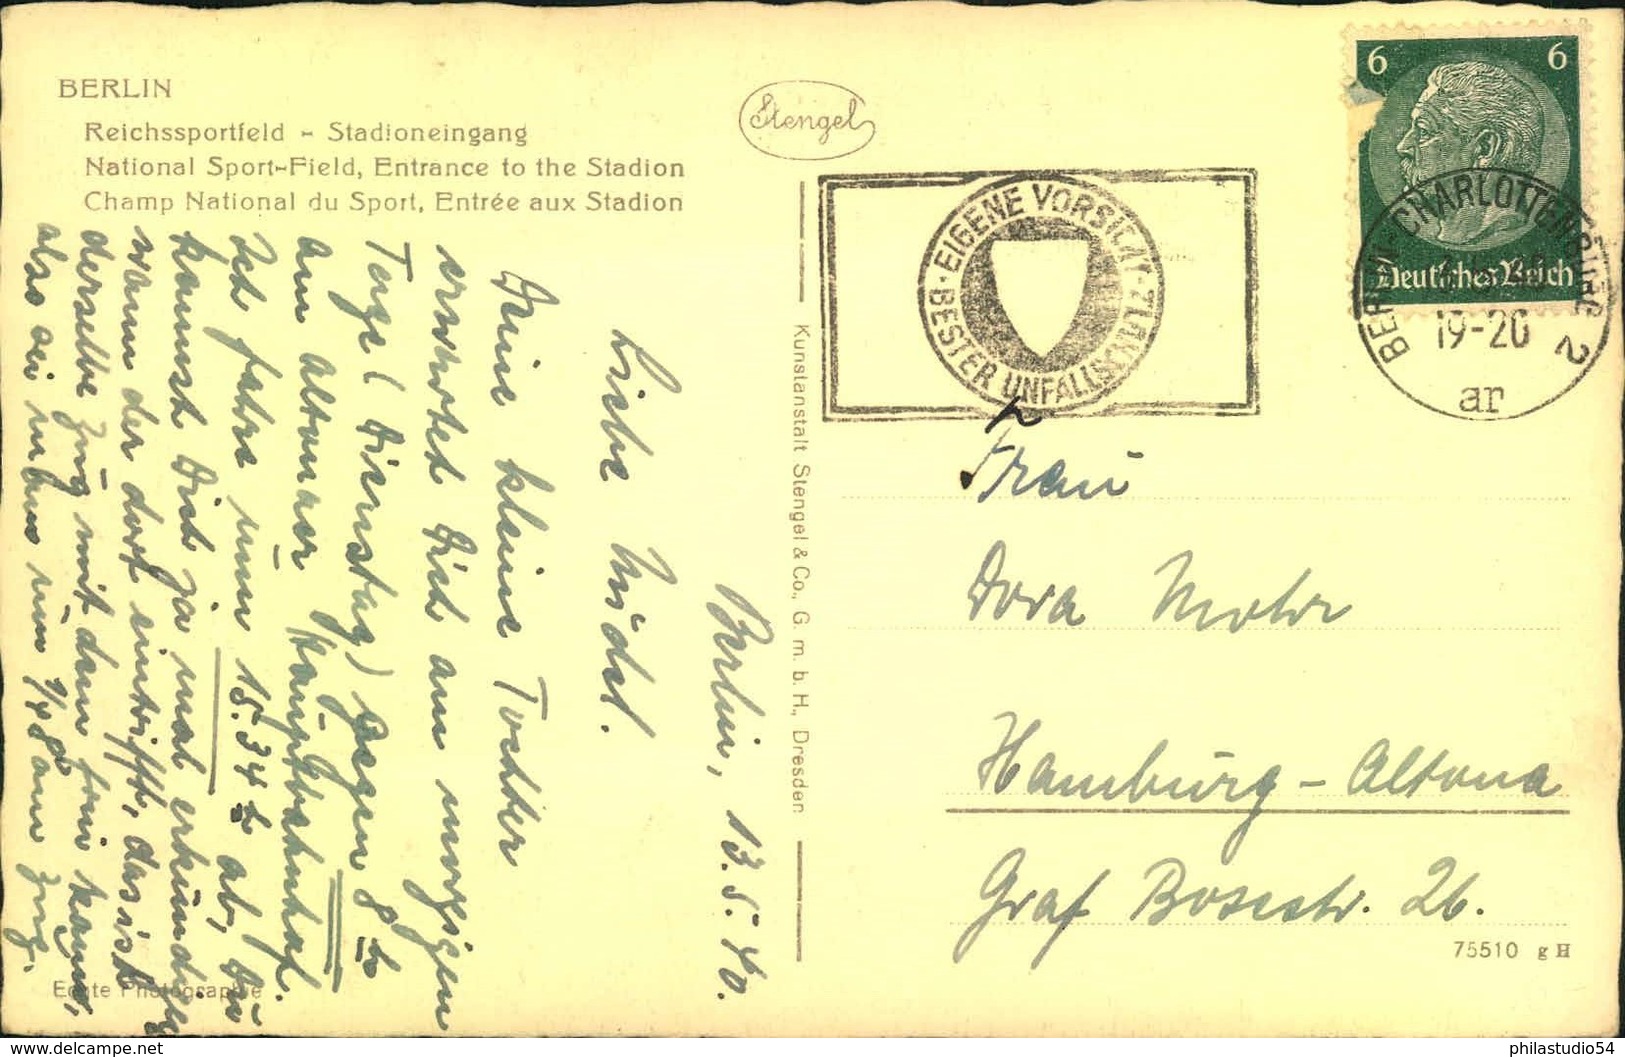 BERLIN
Reichssportfeld - Stadioneingang
National Sport-Field, Entrance to the Stadion
Champ National du Sport, Entrée aux Stadion
Stengel
EIGENE VORSICHT · BESTER UNFALLSCHUTZ ·
6 6
Deutsches Reich
BERLIN-CHARLOTTENBURG 2
19-20
ar
Kunstanstalt Stengel & Co., G. m. b. H., Dresden
Berlin, 13.5.40.
Liebe Mädel.
Deine kleine Tochter
erwartet Dich am morgigen
Tage (Dienstag) gegen 8 h
am Altonaer Hauptbahnhof.
Ich fahre um 15.34 h ab, Du
kannst Dich ja mal erkundigen
wann der dort eintrifft, das ist
derselbe Zug mit dem
also um am Zug.
Frau
Dora Mohr
Hamburg-Altona
Graf Bosestr. 26.
75510 g H
Echte Photographie
https://www.delcampe.net
philastudio54